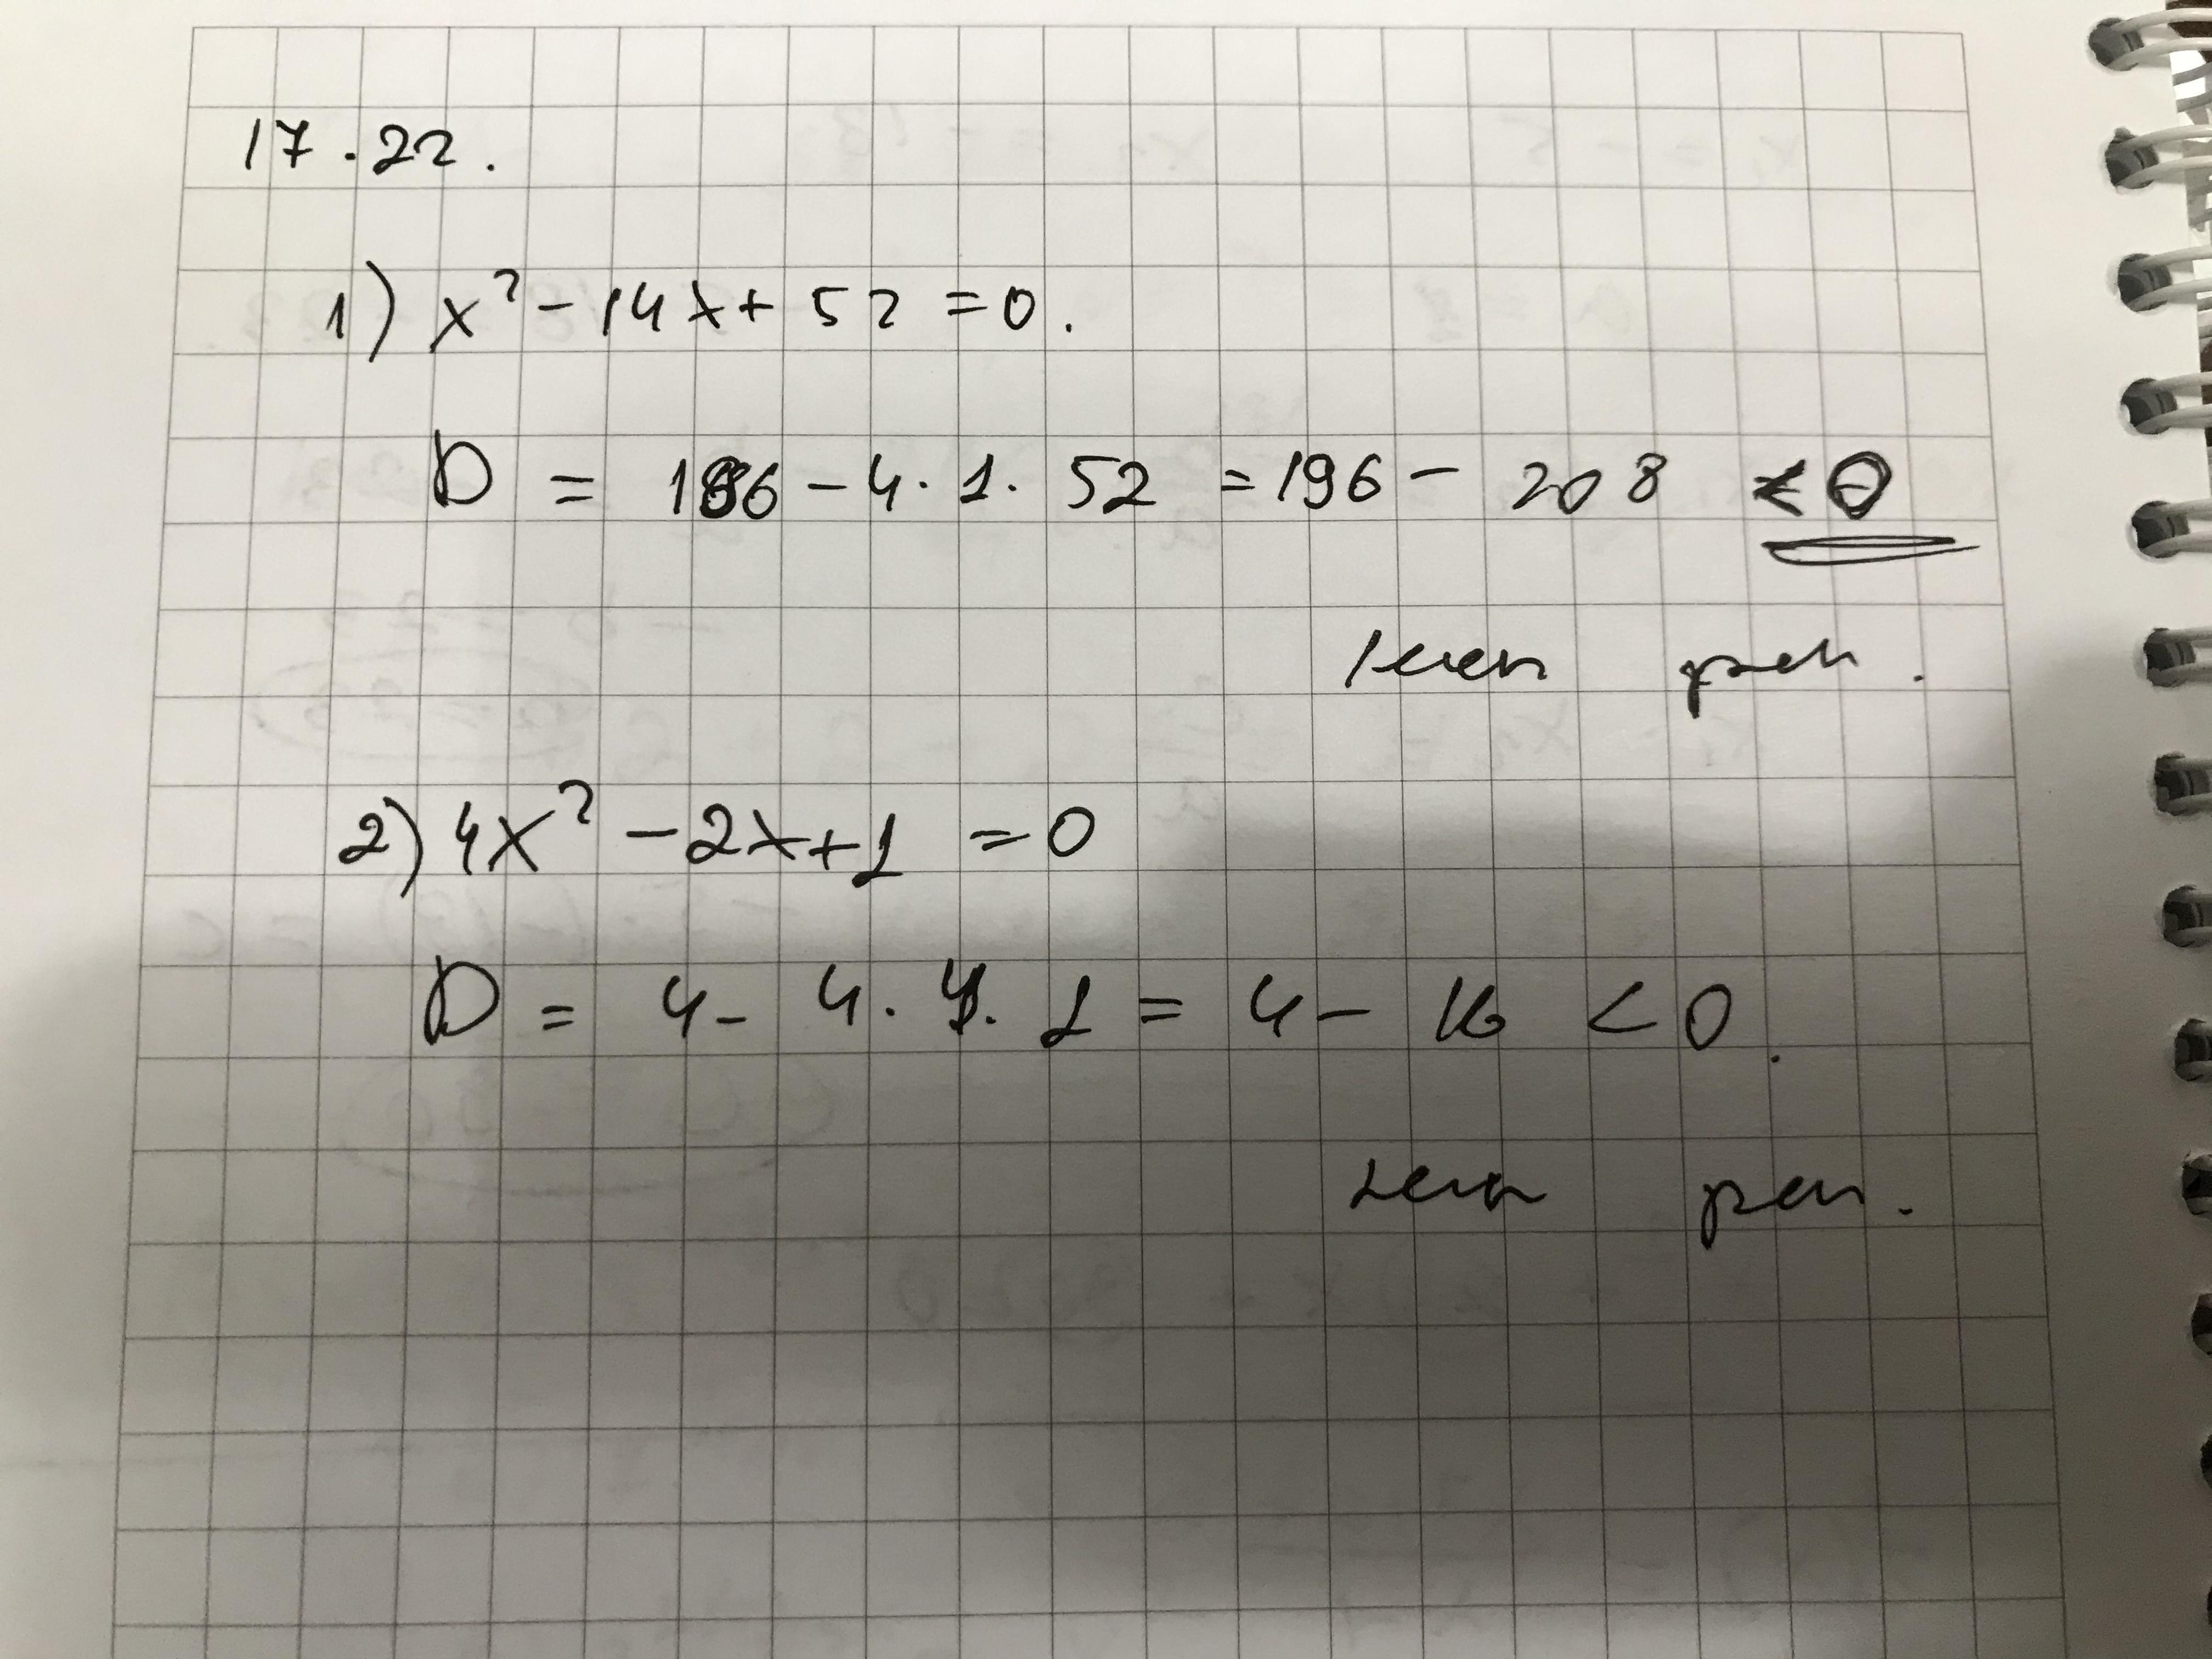 17.22.
1) x² - 14x + 52 = 0.
D = 196 - 4 · 1 · 52 = 196 - 208 < 0
реш.
2) 4x² - 2x + 1 = 0
D = 4 - 4 · 4 · 1 = 4 - 16 < 0.
реш.